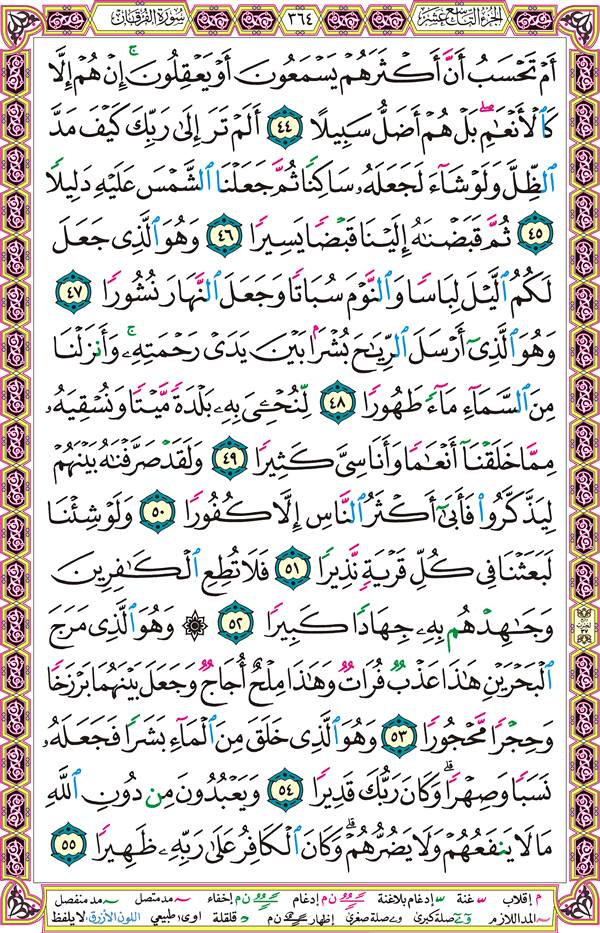 الجزء التاسع عشر ٣٦٤ سورة الفرقان
أَمْ تَحْسَبُ أَنَّ أَكْثَرَهُمْ يَسْمَعُونَ أَوْ يَعْقِلُونَ ۚ إِنْ هُمْ إِلَّا
كَٱلْأَنْعَٰمِ ۖ بَلْ هُمْ أَضَلُّ سَبِيلًا ٤٤ أَلَمْ تَرَ إِلَىٰ رَبِّكَ كَيْفَ مَدَّ
ٱلظِّلَّ وَلَوْ شَآءَ لَجَعَلَهُۥ سَاكِنًا ثُمَّ جَعَلْنَا ٱلشَّمْسَ عَلَيْهِ دَلِيلًا
٤٥ ثُمَّ قَبَضْنَٰهُ إِلَيْنَا قَبْضًا يَسِيرًا ٤٦ وَهُوَ ٱلَّذِى جَعَلَ
لَكُمُ ٱلَّيْلَ لِبَاسًا وَٱلنَّوْمَ سُبَاتًا وَجَعَلَ ٱلنَّهَارَ نُشُورًا ٤٧
وَهُوَ ٱلَّذِىٓ أَرْسَلَ ٱلرِّيَٰحَ بُشْرًۢا بَيْنَ يَدَىْ رَحْمَتِهِۦ ۚ وَأَنزَلْنَا
مِنَ ٱلسَّمَآءِ مَآءً طَهُورًا ٤٨ لِّنُحْۦِىَ بِهِۦ بَلْدَةً مَّيْتًا وَنُسْقِيَهُۥ
مِمَّا خَلَقْنَآ أَنْعَٰمًا وَأَنَاسِىَّ كَثِيرًا ٤٩ وَلَقَدْ صَرَّفْنَٰهُ بَيْنَهُمْ
لِيَذَّكَّرُوا۟ فَأَبَىٰٓ أَكْثَرُ ٱلنَّاسِ إِلَّا كُفُورًا ٥٠ وَلَوْ شِئْنَا
لَبَعَثْنَا فِى كُلِّ قَرْيَةٍ نَّذِيرًا ٥١ فَلَا تُطِعِ ٱلْكَٰفِرِينَ
وَجَٰهِدْهُم بِهِۦ جِهَادًا كَبِيرًا ٥٢ ۞ وَهُوَ ٱلَّذِى مَرَجَ
ٱلْبَحْرَيْنِ هَٰذَا عَذْبٌ فُرَاتٌ وَهَٰذَا مِلْحٌ أُجَاجٌ وَجَعَلَ بَيْنَهُمَا بَرْزَخًا
وَحِجْرًا مَّحْجُورًا ٥٣ وَهُوَ ٱلَّذِى خَلَقَ مِنَ ٱلْمَآءِ بَشَرًا فَجَعَلَهُۥ
نَسَبًا وَصِهْرًا ۗ وَكَانَ رَبُّكَ قَدِيرًا ٥٤ وَيَعْبُدُونَ مِن دُونِ ٱللَّهِ
مَا لَا يَنفَعُهُمْ وَلَا يَضُرُّهُمْ ۗ وَكَانَ ٱلْكَافِرُ عَلَىٰ رَبِّهِۦ ظَهِيرًا ٥٥
م إقلاب غنة إدغام بلاغنة ن م إدغام ن م إخفاء مد متصل مد منفصل
المد اللازم صلة كبرى صلة صغرى إظهار ن م قلقلة اوى طبيعي اللون الأزرق لا يلفظ